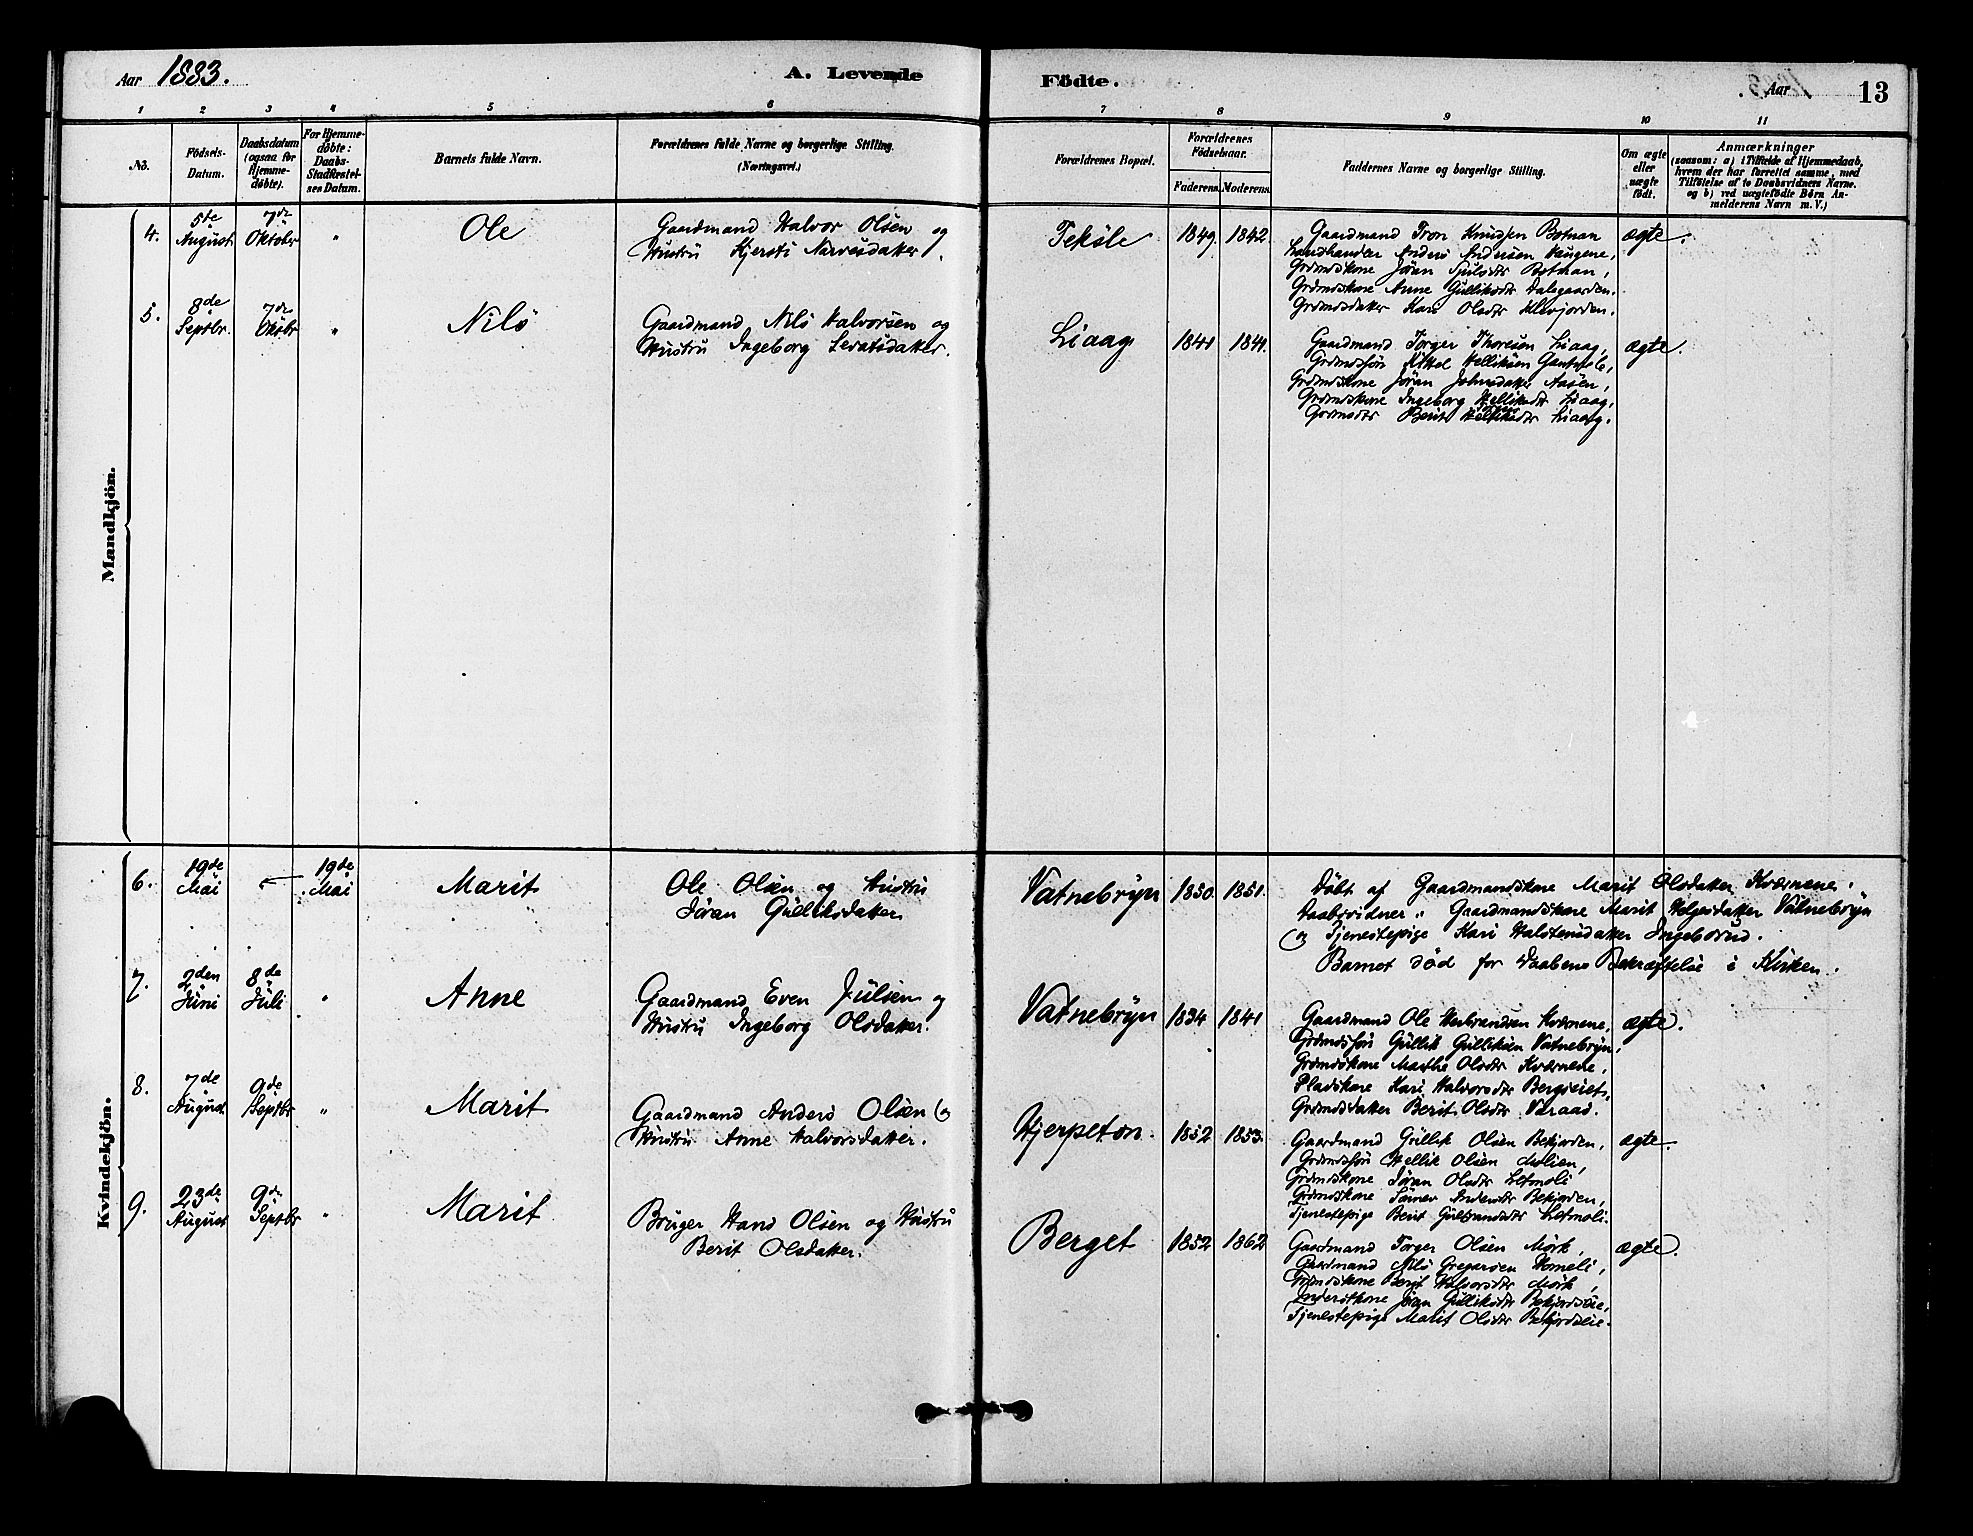 Aar 1883.
A. Levende Födte.
Aar
13
1 2 3 4 5 6 7 8 9 10 11
No.
Födsels-Datum.
Daabsdatum (ogsaa for Hjemme-døbte).
For Hjemme-døbte: Daabs-Stadfæstel-ses Datum.
Barnets fulde Navn.
Forældrenes fulde Navne og borgerlige Stilling.
(Næringsvei.)
Forældrenes Bopæl.
Forældrenes Födselsaar.
Faderens. Moderens.
Faddernes Navne og borgerlige Stilling.
Om ægte eller uægte födt.
Anmærkninger
(saasom: a) i Tilfælde af Hjemmedaab,
hvem der har forrettet samme, med
Tilföielse af to Daabsvidners Navne.
og b) ved uægtefödte Börn An-
melderens Navn m. V.)
Mandkjön.
4. 5te August 7de Oktober " Ole
Gaardmand Halvor Olsen og
Hustru Kjersti Narvesdatter.
Teksle 1849. 1842.
Gaardmand Tron Knudsen Botnan
Landhandler Anders Andersen Haugene,
Grdmdskone Jöran Sjulsdtr Botnan,
Grdmdskone Anne Gulliksdtr Dalegaarden.
Grdmdsdatter Kari Olsdtr Klevjorden.
ægte.
5. 8de Septbr. 7de Oktbr " Nils
Gaardmand Nils Halvorsen og
Hustru Ingeborg Levorsdatter.
Liaag 1841 1841.
Gaardmand Torger Thoresen Liaag,
Grdmdssön Kittel Helliksen
Grdmdskone Jöran Johnsdatter Aasen,
Grdmdskone Ingeborg Helliksdtr Liaag,
Grdmdsdtr Berit Liaag.
ægte.
Kvindekjön.
6. 19de Mai 19de Mai Marit
Ole Olsen og Hustru
Jöran Gulliksdatter
Vatnebryn 1850. 1851.
Döbt af Gaardmandskone Marit Olsdatter Kværnene.
Daabsvidner: Gaardmandskone Marit Helgesdatter Vatnebryn
og Tjenestepige Kari Halstensdatter Ingeborud.
Barnet död för Daabens Bekræftelse i Kirken.
7. 2den Juni 8de Juli " Anne
Gaardmand Even Julsen og
Hustru Ingeborg Olsdatter.
Vatnebryn 1834 1841
Gaardmand Ole Herbrandsen Kværnene,
Grdmdssön Gullik Gulliksen Vatnebryn,
Grdmdskone Marthe Olsdtr Kværnene,
Pladskone Kari Halvorsdtr Bergseiet,
Grdmdsdatter Berit Olsdtr Varaas.
ægte.
8. 7de August 9de Septbr " Marit
Gaardmand Anders Olsen og
Hustru Anne Halvorsdatter.
Hjerpeton. 1852 1853.
Gaardmand Gullik Olsen Bekjorden,
Grdmdssön Hellik Olsen Molien,
Grdmdskone Jöran Olsdtr Letmoli
Grdmdskone Andersdtr Bekjorden,
Tjenestepige Berit Gulbrandsdtr Letmoli.
ægte.
9. 23de August 9de Septbr " Marit
Bruger Hans Olsen og Hustru
Berit Olsdatter.
Berget 1852 1862
Gaardmand Torger Olsen Mörk,
Gaardmand Nils Gregersen Homeli,
Grdmdskone Berit Halvorsdtr Mörk,
Inderstkone Jöran Gulliksdtr Bekjordseie,
Tjenestepige Marit Olsdtr Bekjordseie.
ægte.